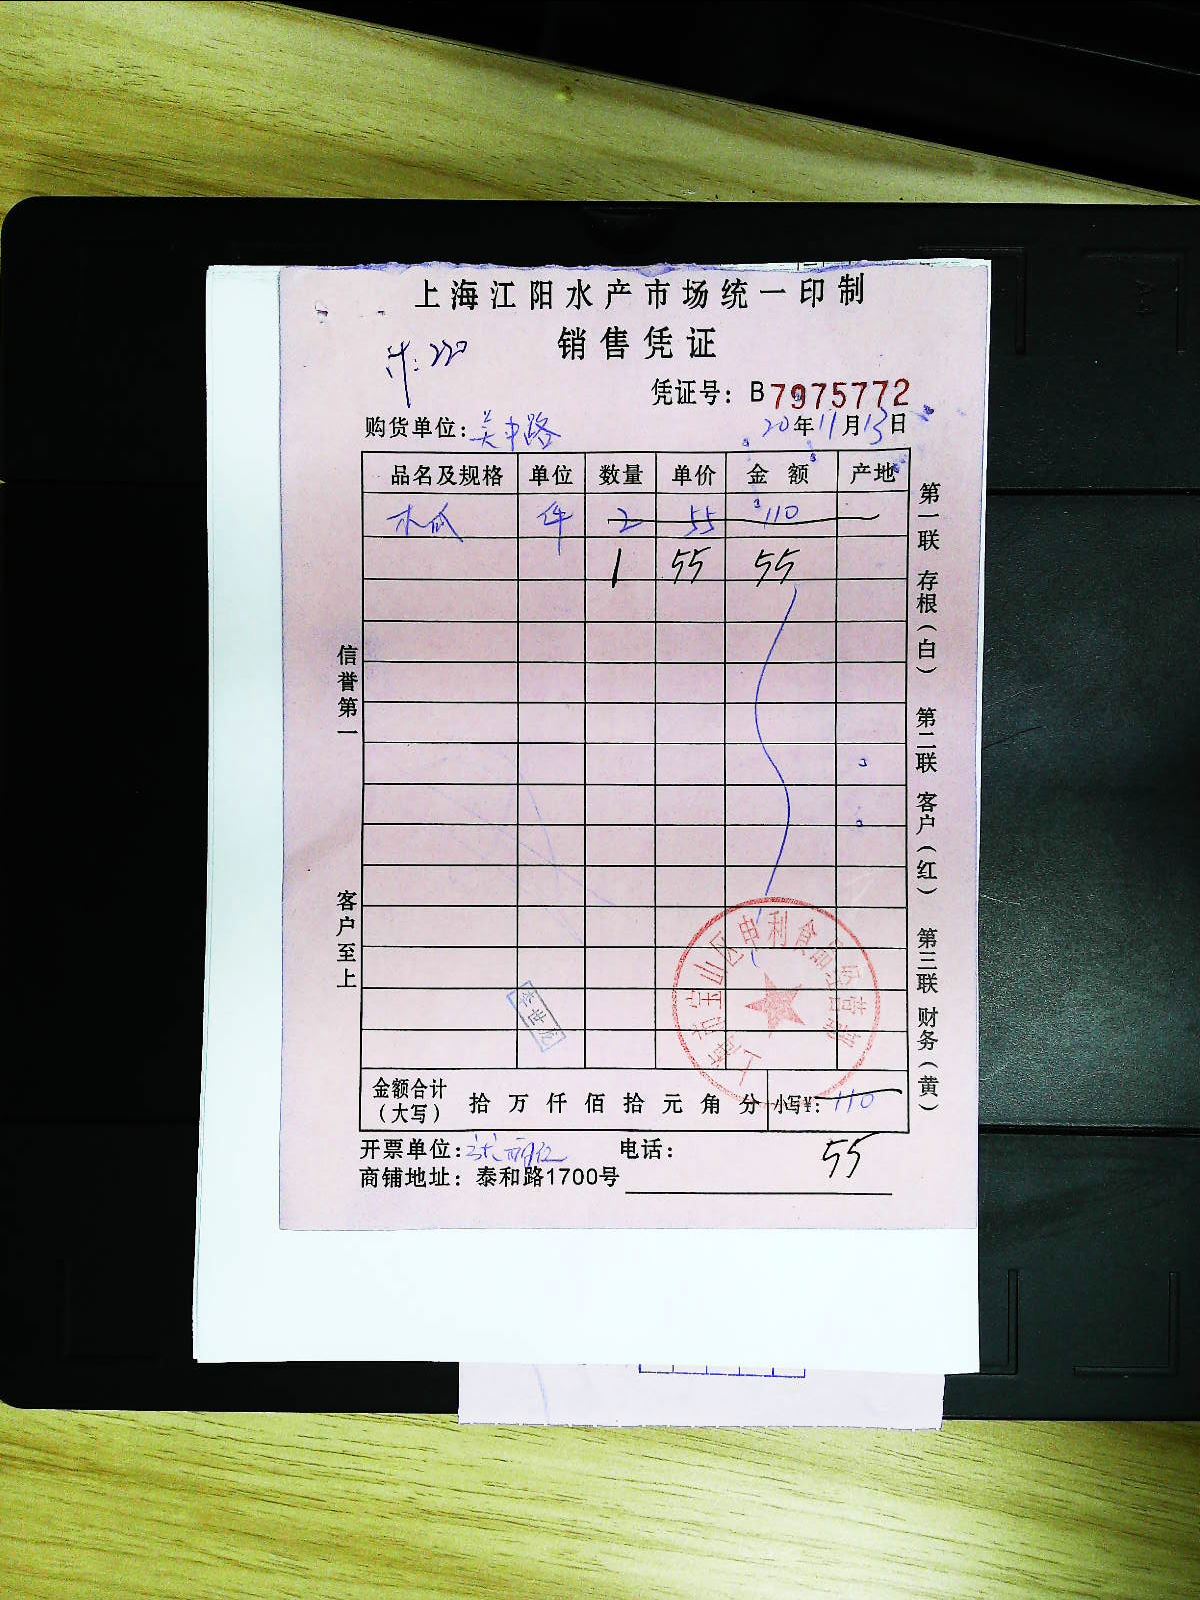 上海江阳水产市场统一印制
销售凭证
计:220
凭证号: B7975772
购货单位:吴中路 20年11月13日
品名及规格 单位 数量 单价 金额 产地
木瓜 件 2 55 110
1 55 55
信誉第一
客户至上
第一联 存根(白) 第二联 客户(红) 第三联 财务(黄)
上海市宝山区申利食品经营部
李世龙
金额合计(大写) 拾万仟佰拾元角分 小写¥: 110
开票单位: 电话: 55
商铺地址: 泰和路1700号